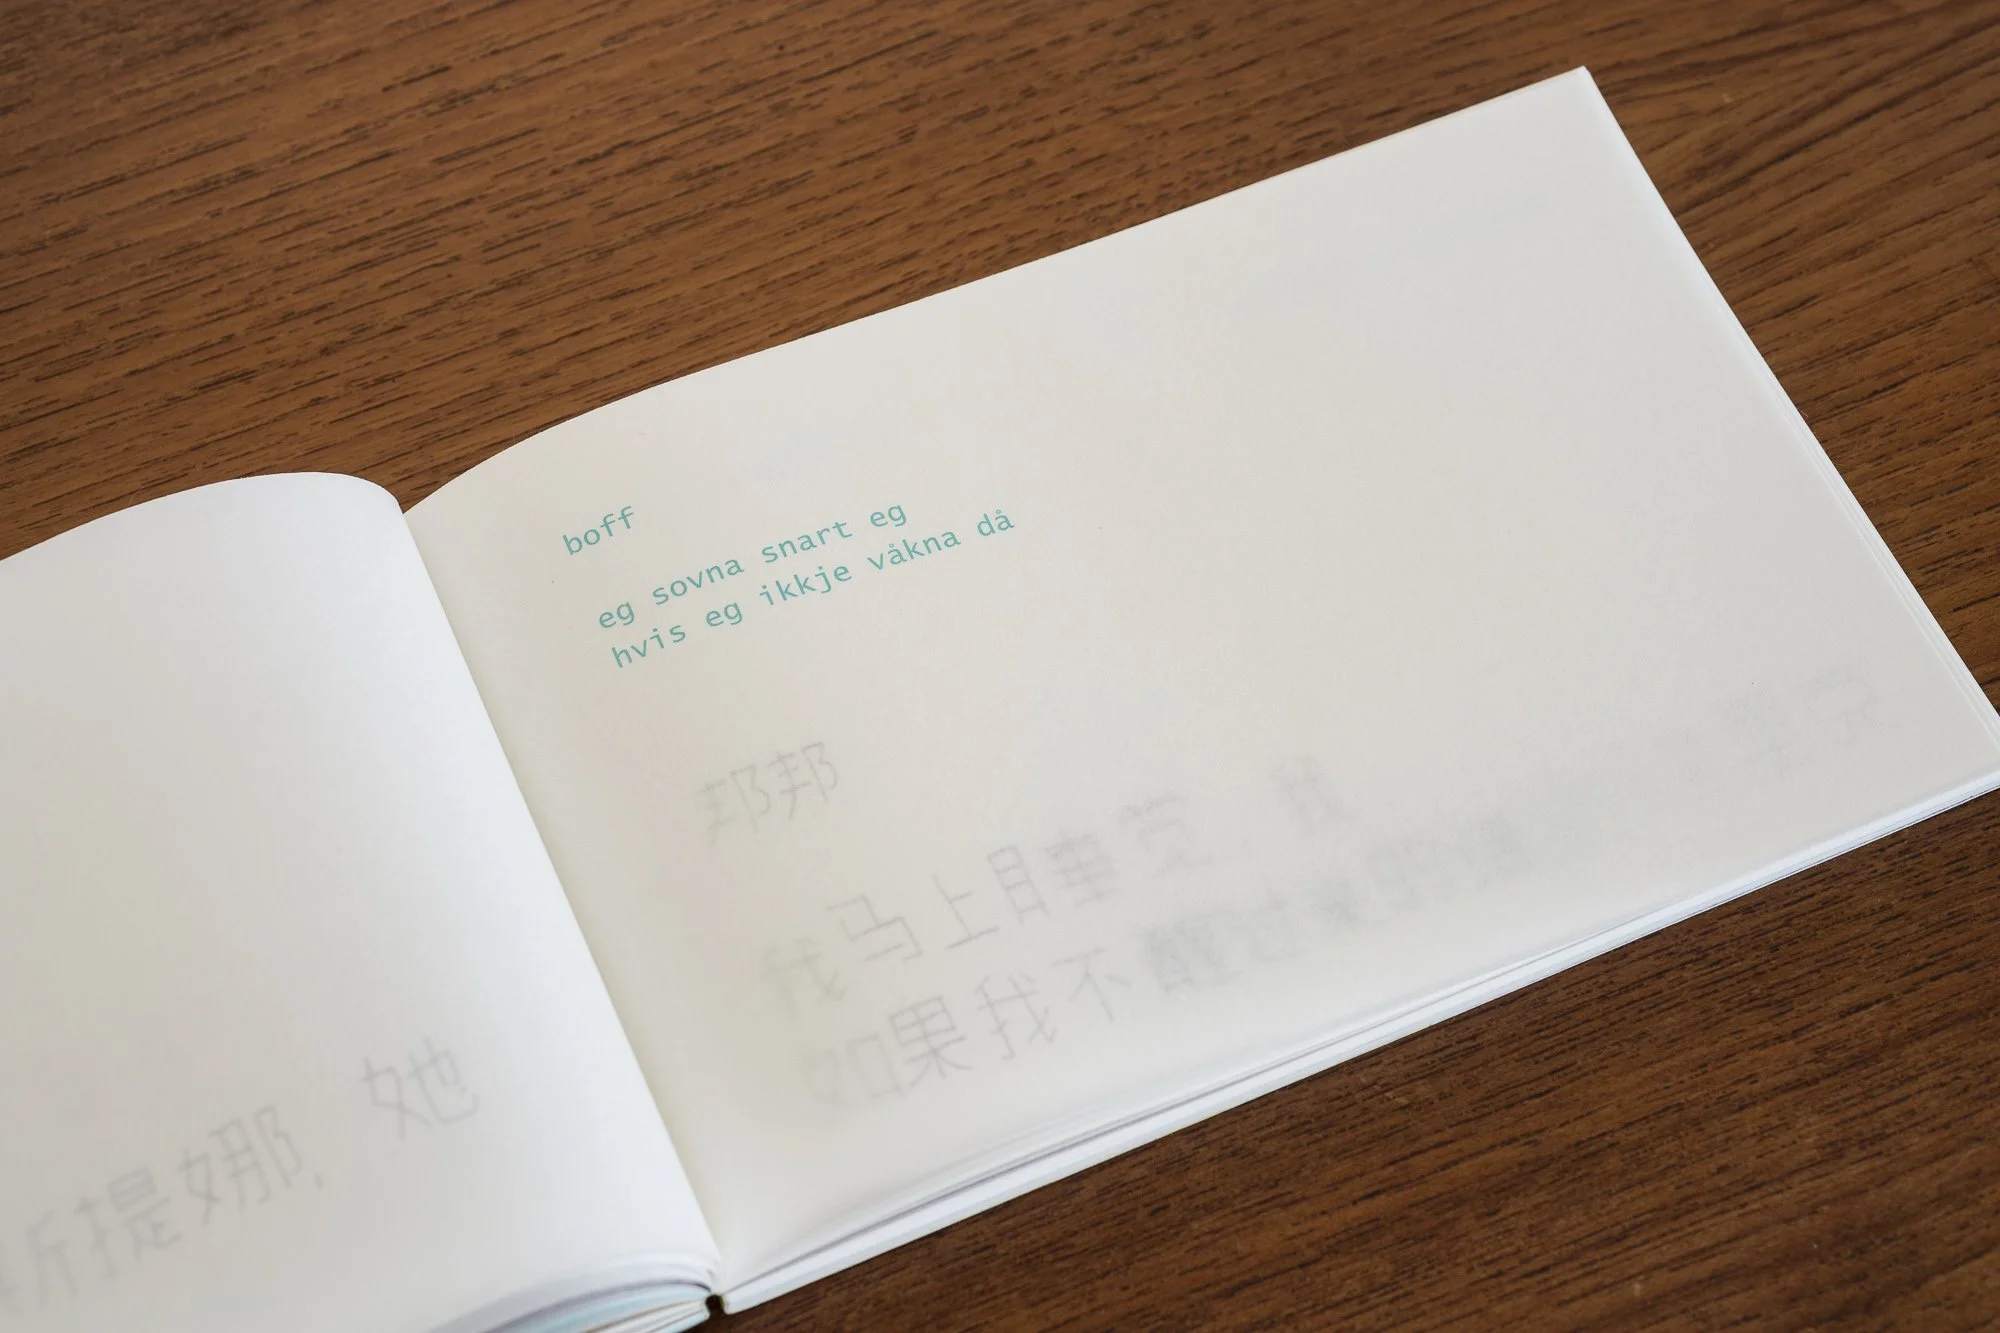 斯提娜，她
boff
eg sovna snart eg
hvis eg ikkje våkna då
邦邦
我马上睡觉，我
如果我不醒过来的